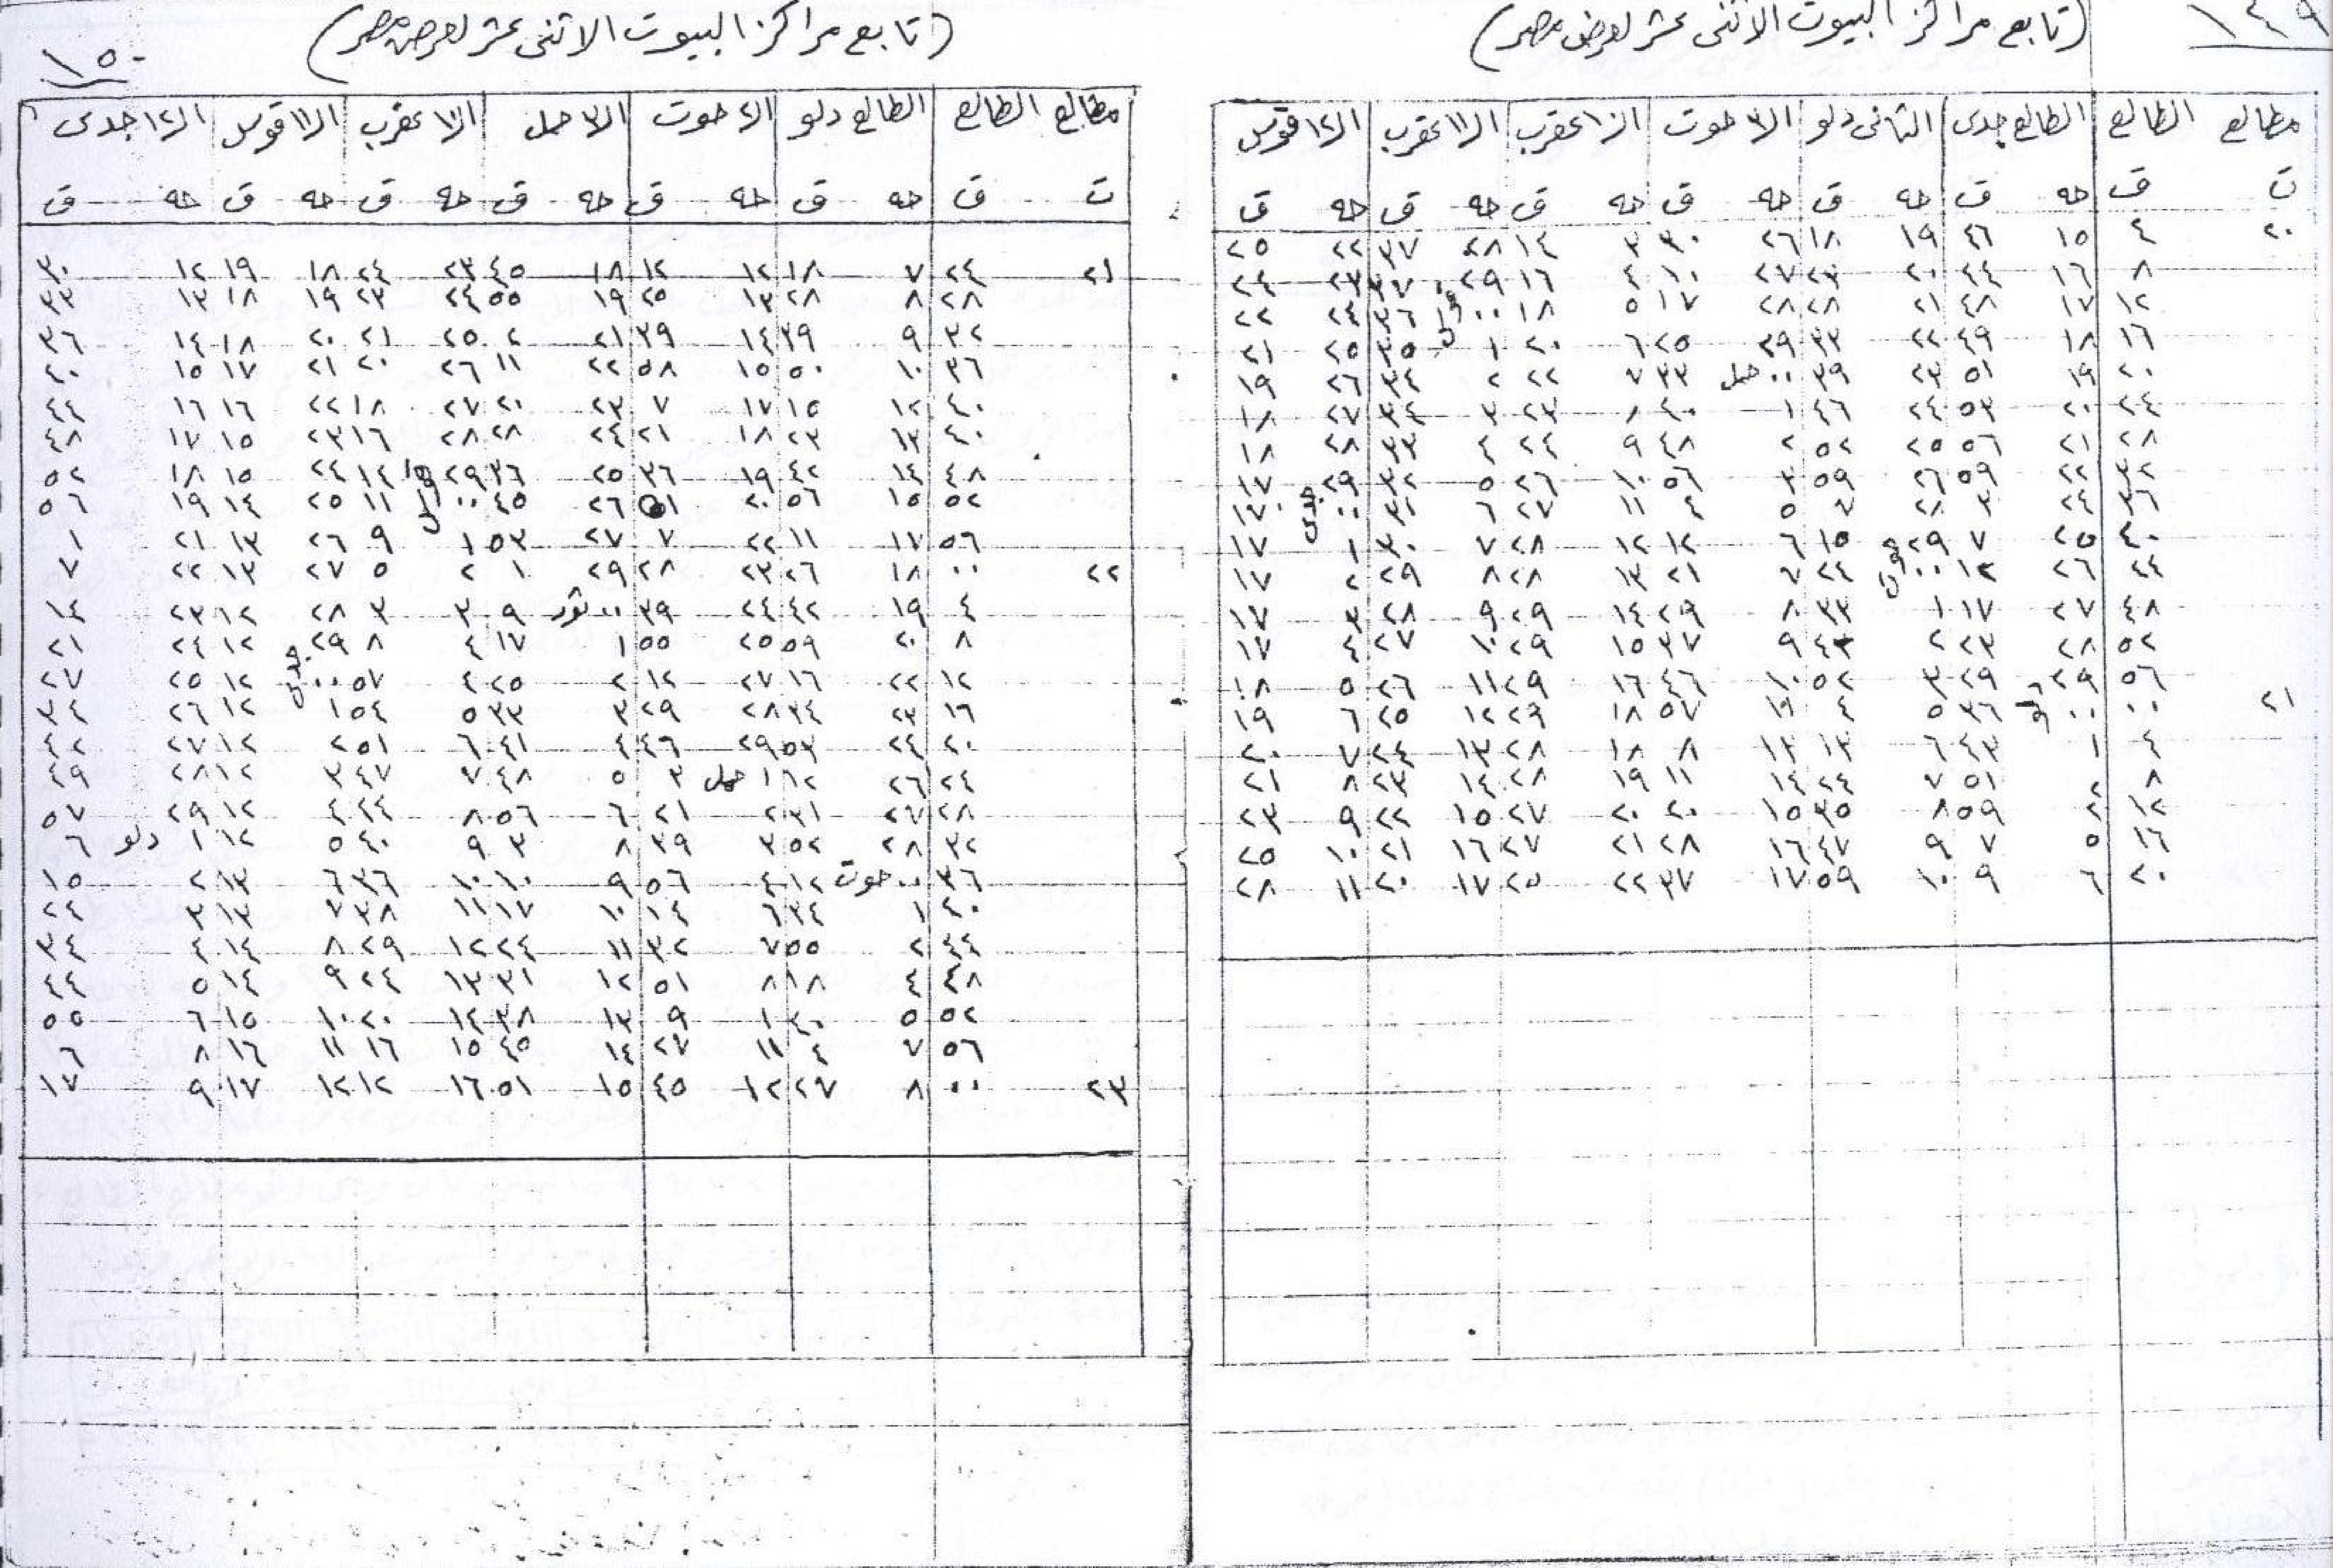 ١٤٩
(تابع مراكز البيوت الاثنى عشر لعرض مصر)
مطالع الطالع الطالع جدى الثانى دلو الـ٣ حوت الـ١٠ عقرب الـ١١ عقرب الـ١٢ قوس
ت ق حه ق حه ق حه ق حه ق حه ق حه ق
٢٠ ٤ ١٥ ٤٦ ١٩ ١٨ ٢٦ ٣٠ ٣ ١٤ ٢٨ ٣٧ ٢٢ ٢٥
٨ ١٦ ٤٤ ٢٠ ٢٣ ٢٧ ١٠ ٤ ١٦ ٢٩ ٣٧ ٢٣ ٢٤
١٢ ١٧ ٤٨ ٢١ ٢٨ ٢٨ ١٧ ٥ ١٨ ٠٠ ٣٦ ٢٤ ٢٢
١٦ ١٨ ٤٩ ٢٢ ٣٣ ٢٩ ٢٥ ٦ ٢٠ ١ ٣٥ ٢٥ ٢١
٢٠ ١٩ ٥١ ٢٣ ٣٩ ٠٠ حمل ٣٣ ٧ ٢٢ ٢ ٣٤ ٢٦ ١٩
٢٤ ٢٠ ٥٣ ٢٤ ٤٦ ١ ٤٠ ٨ ٢٣ ٣ ٣٤ ٢٧ ١٨
٢٨ ٢١ ٥٦ ٢٥ ٥٢ ٢ ٤٨ ٩ ٢٤ ٤ ٣٣ ٢٨ ١٨
٣٢ ٢٢ ٥٩ ٢٦ ٥٩ ٣ ٥٦ ١٠ ٢٦ ٥ ٣٢ ٢٩ ١٧
٣٦ ٢٤ ٣ ٢٨ ٧ ٥ ٤ ١١ ٢٧ ٦ ٣١ ٠٠ جدى ١٧
٤٠ ٢٥ ٧ ٢٩ ١٥ ٦ ١٢ ١٢ ٢٨ ٧ ٣٠ ١ ١٧
٤٤ ٢٦ ١٢ ٠٠ حوت ٢٤ ٧ ٢١ ١٣ ٢٨ ٨ ٢٩ ٢ ١٧
٤٨ ٢٧ ١٧ ١ ٣٣ ٨ ٢٩ ١٤ ٢٩ ٩ ٢٨ ٣ ١٧
٥٢ ٢٨ ٢٣ ٢ ٤٣ ٩ ٣٧ ١٥ ٢٩ ١٠ ٢٧ ٤ ١٧
٥٦ ٢٩ ٢٩ ٣ ٥٢ ١٠ ٤٦ ١٦ ٢٩ ١١ ٢٦ ٥ ١٨
٢١ ٠٠ ٠٠ دلو ٣٦ ٥ ٤ ١٢ ٥٧ ١٨ ٢٩ ١٢ ٢٥ ٦ ١٩
٤ ١ ٤٣ ٦ ١٣ ١٣ ٨ ١٨ ٢٨ ١٣ ٢٤ ٧ ٢٠
٨ ٢ ٥١ ٧ ٢٤ ١٤ ١١ ١٩ ٢٨ ١٤ ٢٣ ٨ ٢١
١٢ ٢ ٥٩ ٨ ٣٥ ١٥ ٢٠ ٢٠ ٢٧ ١٥ ٢٢ ٩ ٢٣
١٦ ٥ ٧ ٩ ٤٧ ١٦ ٢٨ ٢١ ٢٧ ١٦ ٢١ ١٠ ٢٥
٢٠ ٦ ٩ ١٠ ٥٩ ١٧ ٣٧ ٢٢ ٢٥ ١٧ ٢٠ ١١ ٢٨
١٥٠
(تابع مراكز البيوت الاثنى عشر لعرض مصر)
مطالع الطالع الطالع دلو الـ٢ حوت الـ٣ حمل الـ١٠ عقرب الـ١١ قوس الـ١٢ جدى
ت ق حه ق حه ق حه ق حه ق حه ق حه ق
٢١ ٢٤ ٧ ١٨ ١٢ ١٢ ١٨ ٤٥ ٢٣ ٢٤ ١٨ ١٩ ١٢ ٣٠
٢٨ ٨ ٢٨ ١٣ ٢٥ ١٩ ٥٥ ٢٤ ٢٣ ١٩ ١٨ ١٣ ٣٣
٣٢ ٩ ٣٩ ١٤ ٣٩ ٢١ ٢ ٢٥ ٢١ ٢٠ ١٨ ١٤ ٣٦
٣٦ ١٠ ٥٠ ١٥ ٥٨ ٢٢ ١١ ٢٦ ٢٠ ٢١ ١٧ ١٥ ٤٠
٤٠ ١٢ ١٥ ١٧ ٧ ٢٣ ٢٠ ٢٧ ١٨ ٢٢ ١٦ ١٦ ٤٤
٤٠ ١٣ ٢٣ ١٨ ٢١ ٢٤ ٢٨ ٢٨ ١٦ ٢٣ ١٥ ١٧ ٤٨
٤٨ ١٤ ٤٢ ١٩ ٣٦ ٢٥ ٣٦ ٢٩ ١٤ ٢٤ ١٥ ١٨ ٥٢
٥٢ ١٥ ٥٦ ٢٠ ٥١ ٢٦ ٤٥ ٠٠ ١١ ٢٥ ١٤ ١٩ ٥٦
٥٦ ١٧ ١١ ٢٢ ٧ ٢٧ ٥٣ ١ ٩ ٢٦ ١٣ ٢١ ١
٢٢ ٠٠ ١٨ ٢٦ ٢٣ ٢٨ ٢٩ ١ ٢ ٥ ٢٧ ١٣ ٢٢ ٧
٤ ١٩ ٤٢ ٢٤ ٣٩ ٠٠ ثور ٩ ٣ ٣ ٢٨ ١٢ ٢٣ ١٤
٨ ٢٠ ٥٩ ٢٥ ٥٥ ١ ١٧ ٤ ٨ ٢٩ ١٢ ٢٤ ٢١
١٢ ٢٢ ١٦ ٢٧ ١٢ ٢ ٢٥ ٤ ٥٧ ٠٠ جدى ١٢ ٢٥ ٢٧
١٦ ٢٣ ٣٤ ٢٨ ٢٩ ٣ ٣٣ ٥ ٥٤ ١ ١٢ ٢٦ ٣٤
٢٠ ٢٤ ٥٣ ٢٩ ٤٦ ٤ ٤١ ٦ ٥١ ٢ ١٢ ٢٧ ٤٢
٢٤ ٢٦ ١٢ ١ حمل ٣ ٥ ٤٨ ٧ ٤٧ ٣ ١٢ ٢٨ ٤٩
٢٨ ٢٧ ٣١ ٢ ٢١ ٦ ٥٦ ٨ ٤٤ ٤ ١٢ ٢٩ ٥٧
٣٢ ٢٨ ٥٢ ٣ ٣٩ ٨ ٣ ٩ ٤٠ ٥ ١٢ ١ دلو ٦
٣٦ ٠٠ حوت ١٢ ٤ ٥٦ ٩ ١٠ ١٠ ٣٦ ٦ ١٣ ٢ ١٥
٤٠ ١ ٣٤ ٦ ١٤ ١٠ ١٧ ١١ ٣٨ ٧ ١٣ ٣ ٢٤
٤٤ ٢ ٥٥ ٧ ٣٢ ١١ ٢٤ ١٢ ٢٩ ٨ ١٤ ٤ ٣٤
٤٨ ٤ ١٨ ٨ ٥١ ١٢ ٣١ ١٣ ٢٤ ٩ ١٤ ٥ ٤٤
٥٢ ٥ ٤٠ ١ ٩ ١٣ ٣٨ ١٤ ٢٠ ١٠ ١٥ ٦ ٥٥
٥٦ ٧ ٤ ١١ ٢٧ ١٤ ٤٥ ١٥ ١٦ ١١ ١٦ ٨ ٦
٢٣ ٠٠ ٨ ٢٧ ١٢ ٤٥ ١٥ ٥١ ١٦ ١٢ ١٢ ١٧ ٩ ١٧